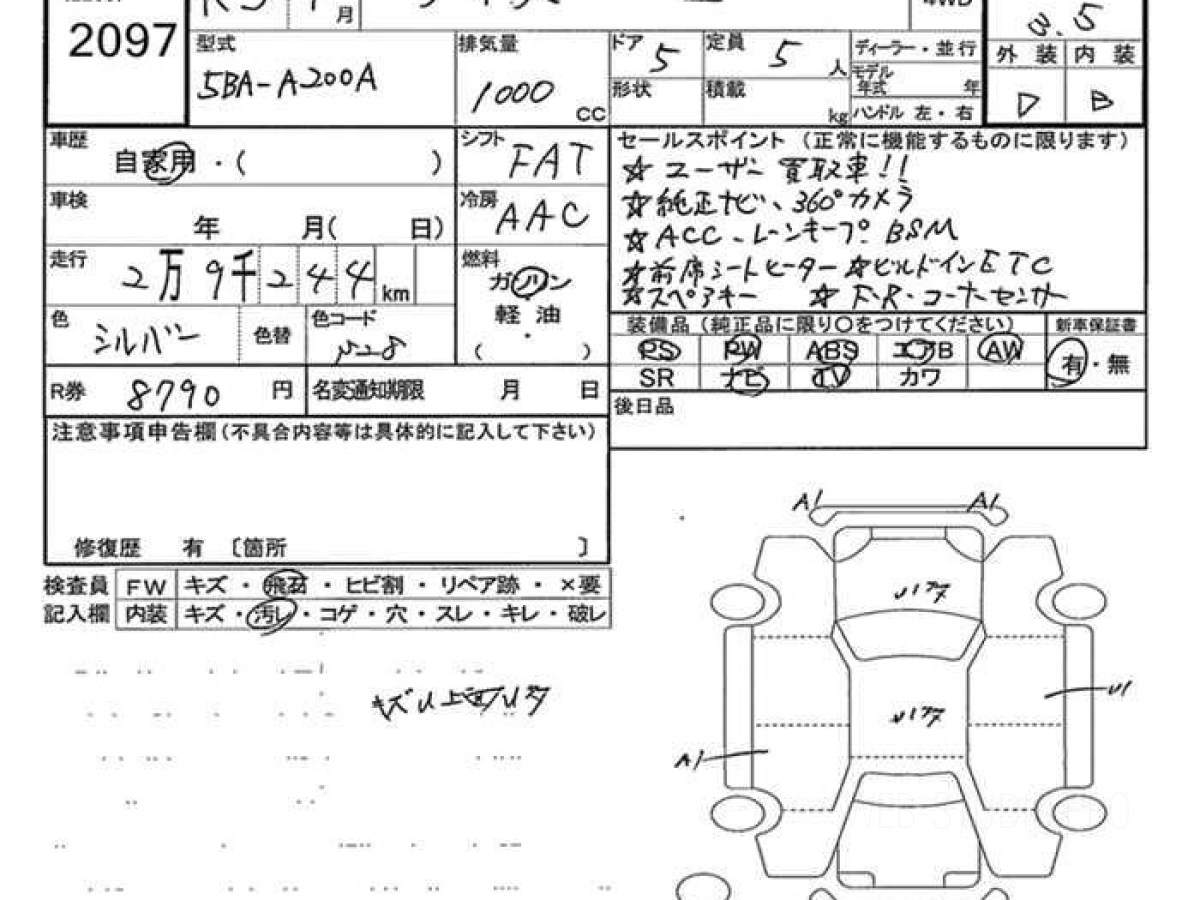 R5 月
4WD
2097
3.5
型式
5BA-A200A
排気量
1000 CC
ドア 5
定員 5 人
形状
積載 kg
ディーラー・並行
モデル年式 年
ハンドル 左・右
外装 内装
D B
車歴
自家用・( )
シフト
FAT
セールスポイント (正常に機能するものに限ります)
☆ ユーザー買取車!!
☆ 純正ナビ、360°カメラ
☆ ACC、レーンキープ、BSM
☆ 前席シートヒーター ☆ビルドインETC
☆スペアキー ☆ F・R・コーナーセンサー
車検
年 月( 日)
冷房
AAC
走行
2万9千244km
燃料
ガソリン
軽油
・
( )
色
シルバー
色替
色コード
装備品 (純正品に限り○をつけてください)
新車保証書
PS PW ABS エアB AW
SR ナビ TV カワ
有・無
R券 8790 円
名変通知期限 月 日
後日品
注意事項申告欄(不具合内容等は具体的に記入して下さい)
修復歴 有 〔箇所 〕
検査員 FW キズ・飛石・ヒビ割・リペア跡・×要
記入欄 内装 キズ・汚レ・コゲ・穴・スレ・キレ・破レ
A1 A1
U1
A1